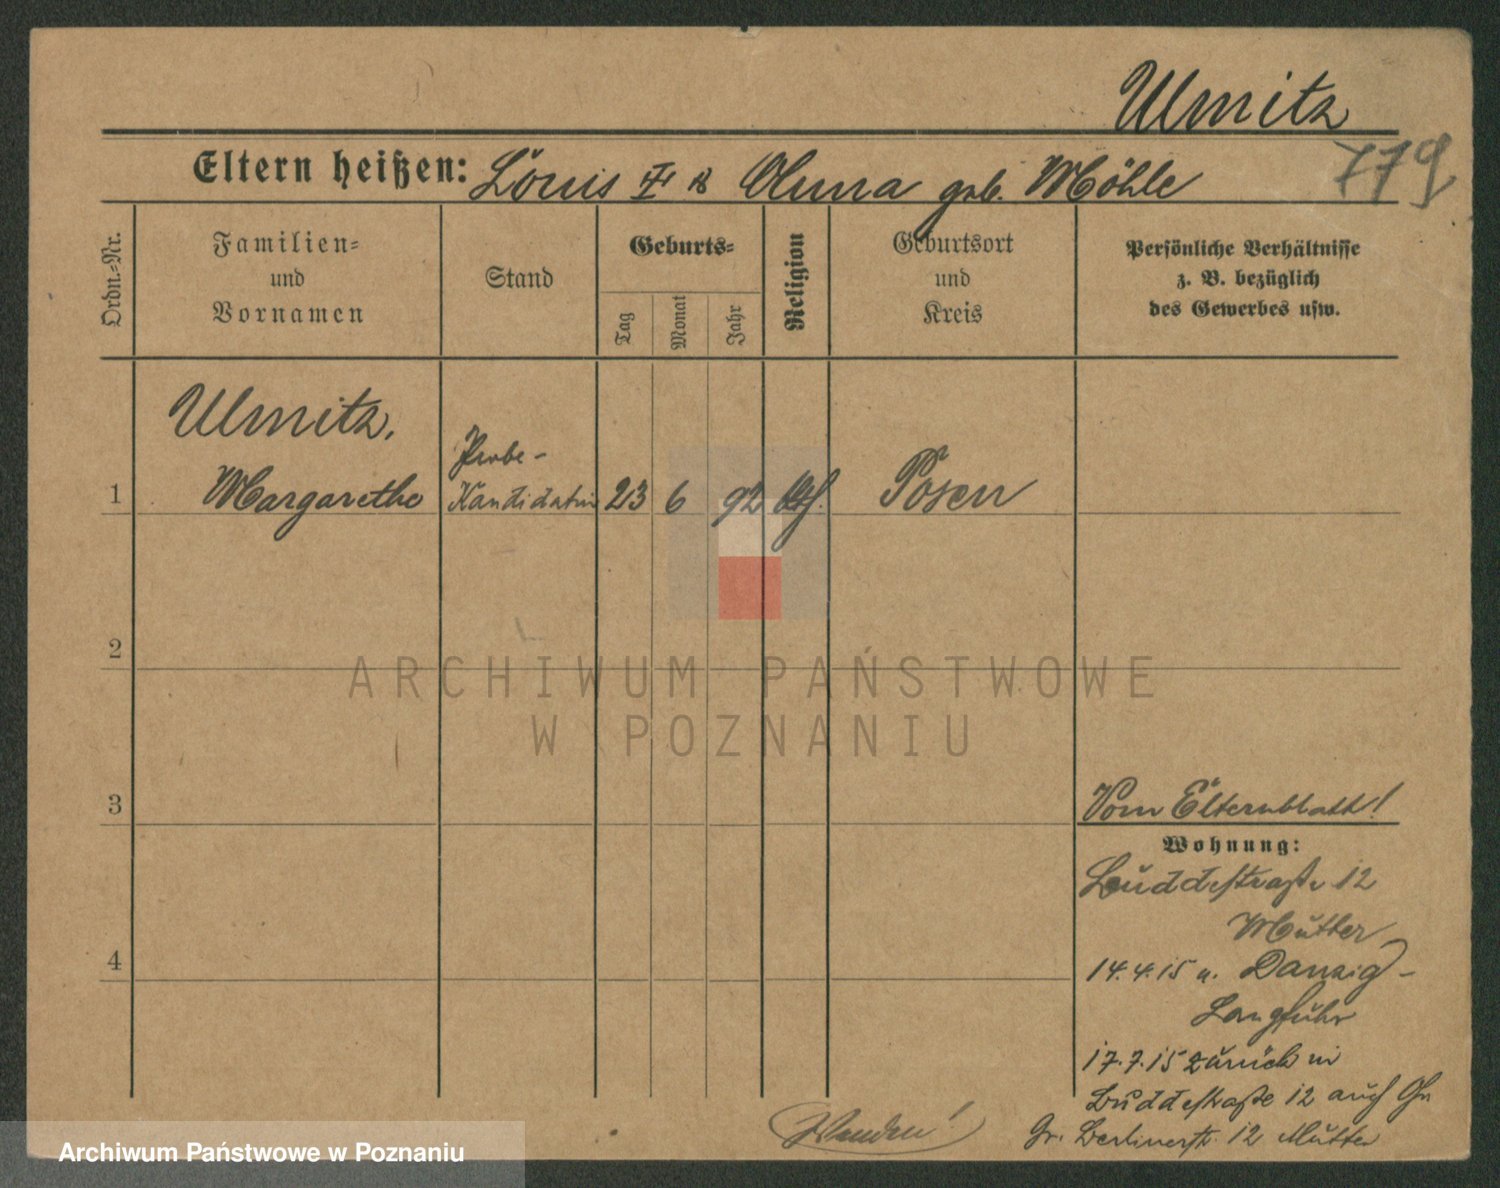 Ulmitz
779
Eltern heißen: Louis u Anna geb. Möhle
Ordn.-Nr.
Familien-
und
Vornamen
Stand
Geburts-
Tag
Monat
Jahr
Religion
Geburtsort
und
Kreis
Persönliche Verhältnisse
z. B. bezüglich
des Gewerbes usw.
Ulmitz,
Probe-
1 Margarethe Kandidatin 23 6 92 Posen
2
ARCHIWUM PAŃSTWOWE
W POZNANIU
Vom Elternblatt!
3
Wohnung:
Buddestraße 12
Mutter
4
14.4.15 n. Danzig-
Langfuhr
17.7.15 zurück in
Buddestraße 12 auch
Gr. Berlinerstr. 12 Mutter
Wenden!
Archiwum Państwowe w Poznaniu